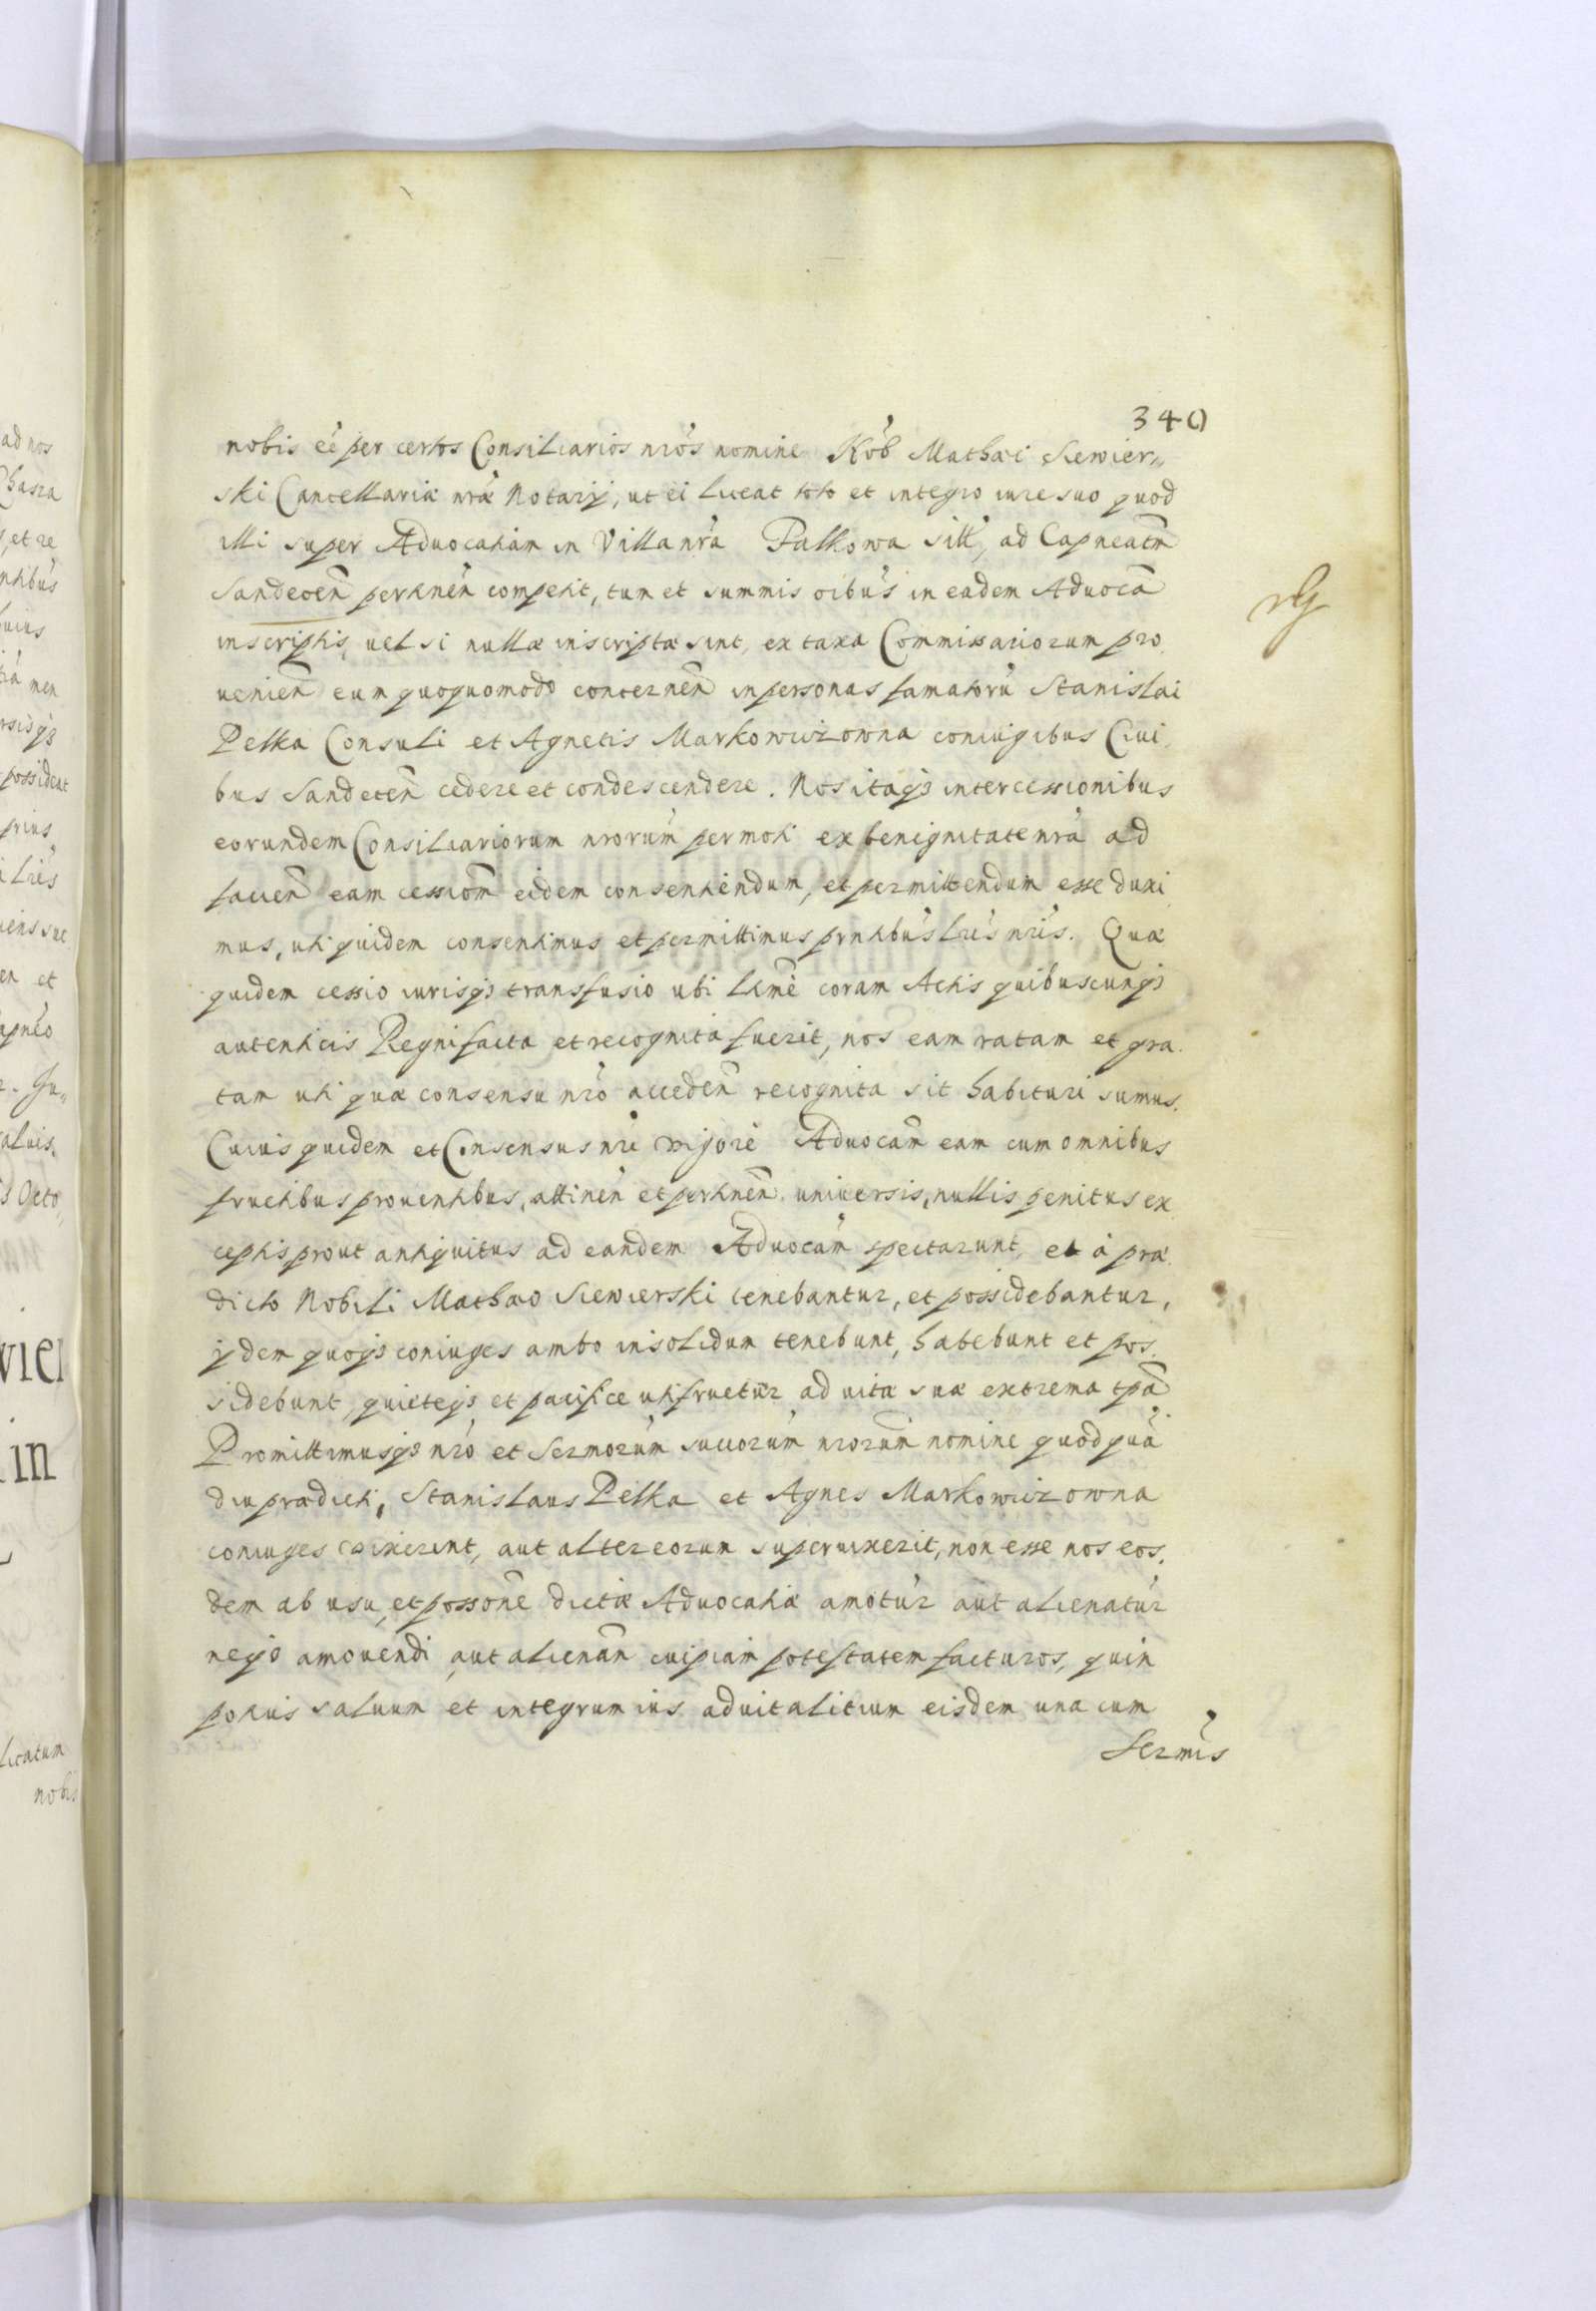 340
nobis eē per certos Consiliarios nrōs nomine Nōb Mathæi Siewier„
ski Cancellariæ nrǣ Notarij, ut ei liceat toto et integro iure suo quod
illi super Aduocatiam in Villa nrā Falkowa sitt, ad Capneatm̄
Sandecen̄ pertinēn competit, tum et summis oibūs in eadem Aduocā
inscriptis, uel si nullæ inscriptæ sint, ex taxa Commissariorum pro
uenien̄ eum quoquomodo concernēn in personas famatorū Stanislai
Pełka Consuli et Agnetis Markowiczowna coniugibus Ciui
bus Sandecen̄ cedere et condescendere. Nos itaqȝ intercessionibus
eorundem Consiliariorum nrorūm permoti ex benignitate nrā ad
facien̄ eam cessiom̄ eidem consentiendum, et permittendum esse duxi
mus, uti quidem consentimus et permittimus prntibūs lrīs nrīs. Quæ
quidem cessio iurisqȝ transfusio ubi ltmē coram Actis quibuscunqȝ
autenticis Regni facta et recognita fuerit, nos eam ratam et gra
tam uti quæ consensu nrō acceden̄ recognita sit habituri sumus.
Cuius quidem et Consensus nrī vigore Aduocam̄ eam cum omnibus
fructibus prouentibus, attinēn et pertinēn uniuersis, nullis penitus ex
ceptis prout antiquitus ad eandem Aduocam̄ spectarunt, et à præ
dicto Nobili Mathæo Siewierski tenebantur, et possidebantur,
ijdem quoqȝ coniuges ambo insolidum tenebunt, habebunt et pos
sidebunt, quieteqȝ et pacifice utifruetūr ad uitæ suæ extrema tpā
Promittimusqȝ nrō et Sermorūm succorūm nrorūm nomine quod quā
diu prædicti, Stanislaus Pełka et Agnes Markowiczowna
coniuges uixerint, aut alter eorum superuixerit, non esse nos eos
dem ab usu, et possone dictæ Aduocatiæ amotūr aut alienatūr
neqȝ amouendi aut alienan̄ cuipiam potestatem facturos, quin
potius saluum et integrum ius aduitalitium eisdem una cum
Sermīs